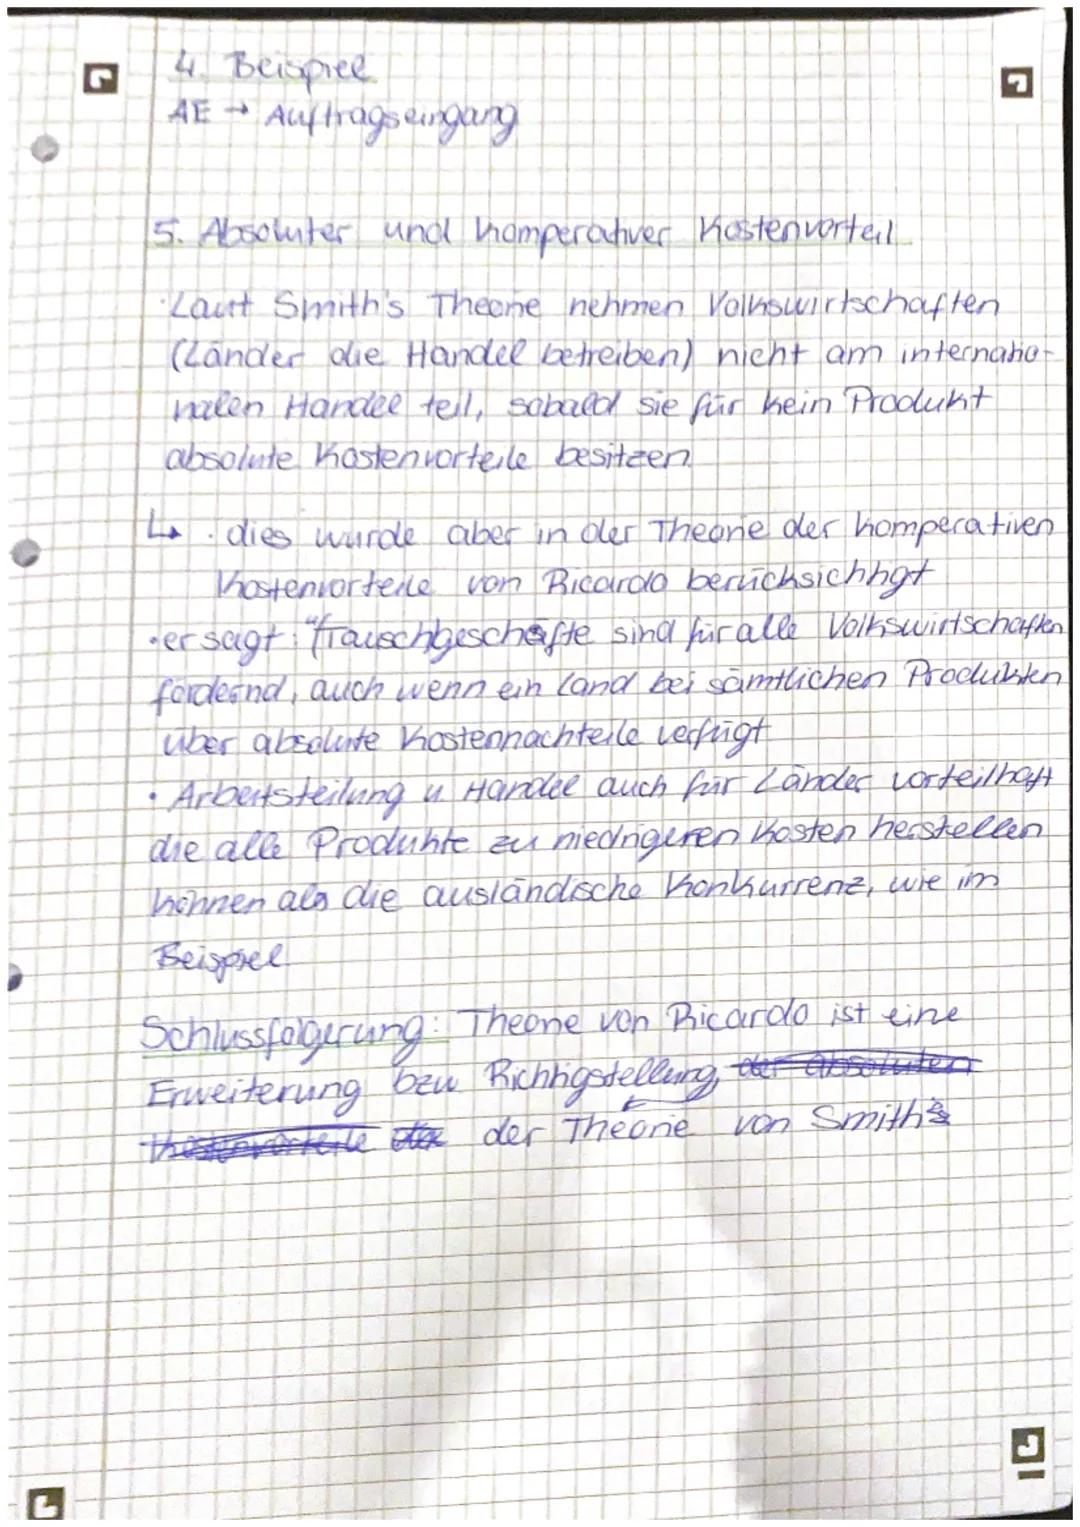 4. Beispiel
AE → Auftragseingang
5. Absoluter und komperativer Kostenvorteil
·Laut Smith's Theorie nehmen Volkswirtschaften
(Länder die Handel betreiben) nicht am internatio-
nalen Handel teil, sobald sie für kein Produkt
absolute Kostenvorteile besitzen.
↳ · dies wurde aber in der Theorie der komperativen
Kostenvorteile von Ricardo berücksichtigt
·er sagt: "Tauschgeschäfte sind für alle Volkswirtschaften
fördernd, auch wenn ein Land bei sämtlichen Produkten
über absolute Kostennachteile verfügt
· Arbeitsteilung u Handel auch für Länder vorteilhaft
die alle Produkte zu niedrigeren Kosten herstellen
können als die ausländische Konkurrenz, wie im
Beispiel.
Schlussfolgerung: Theorie von Ricardo ist eine
Erweiterung bzw Richtigstellung, der absoluten
Kostenvorteile der Theorie von Smith